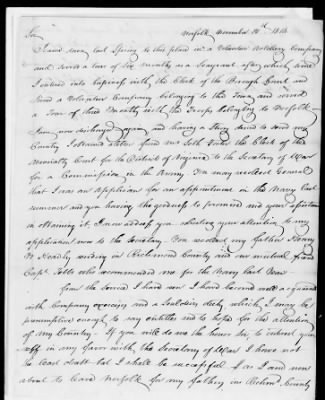 Norfolk November 18th 1814
Sir
I came down last Spring to this place in a Volunteer Artillery Company
and served a tour of Six Months as a Sergeant after which time
I entered into business with the Clerk of the Borough Court and
joined a Volunteer Company belonging to this Town and served
a Tour of three Months with the Troops belonging to Norfolk
I am now discharged again and having a strong desire to serve my
Country I obtained a letter from Mr Seth Foster the Clerk of the
Admiralty Court for the District of Virginia to the Secretary of War
for a Commission in the Army. You may recollect General
that I was an Applicant for an appointment in the Navy last
summer and you having the goodness to promise me your assistance
in obtaining it I now address you soliciting your attention to my
application now to the Secretary. You recollect my father Henry
residing in Richmond County and our mutual friend
Capt. who recommended me for the Navy last year
from the Service I have seen I have become well acquainted
with Company exercising and a Soldiers duty which I may be
presumptive enough to say entitles me to hope for the attention
of my Country. If you will do me the honor Sir, to interest your
self in my favor with the Secretary of War I have not
the least doubt but I shall be successful. As I am now
about to leave Norfolk for my fathers in Richmond County